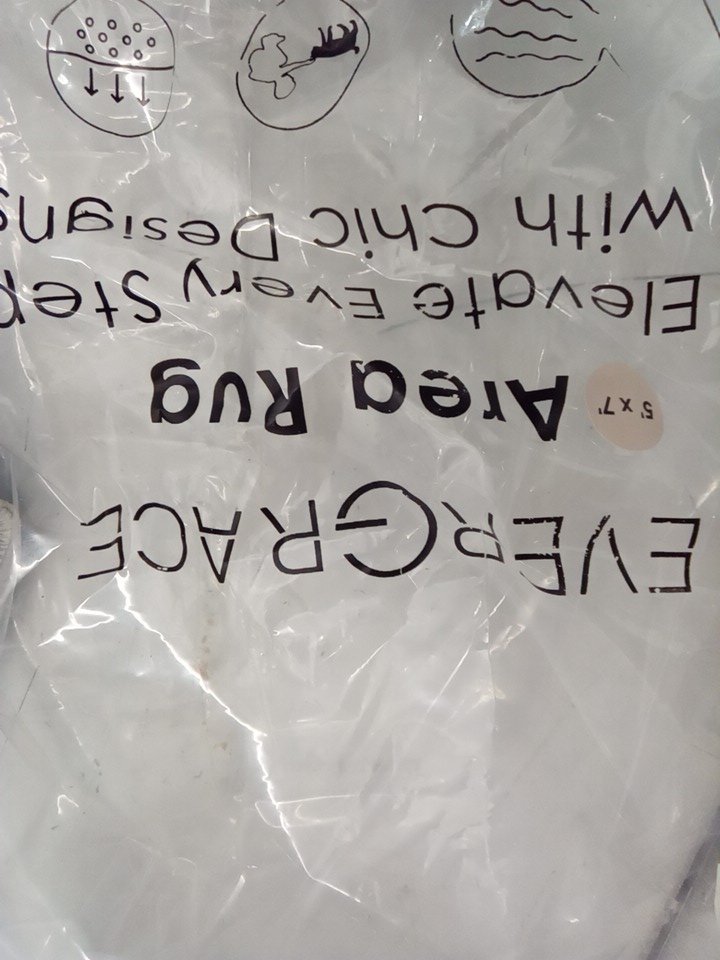 EVERGRACE
5' x 7' Area Rug
Elevate Every Step
With Chic Designs